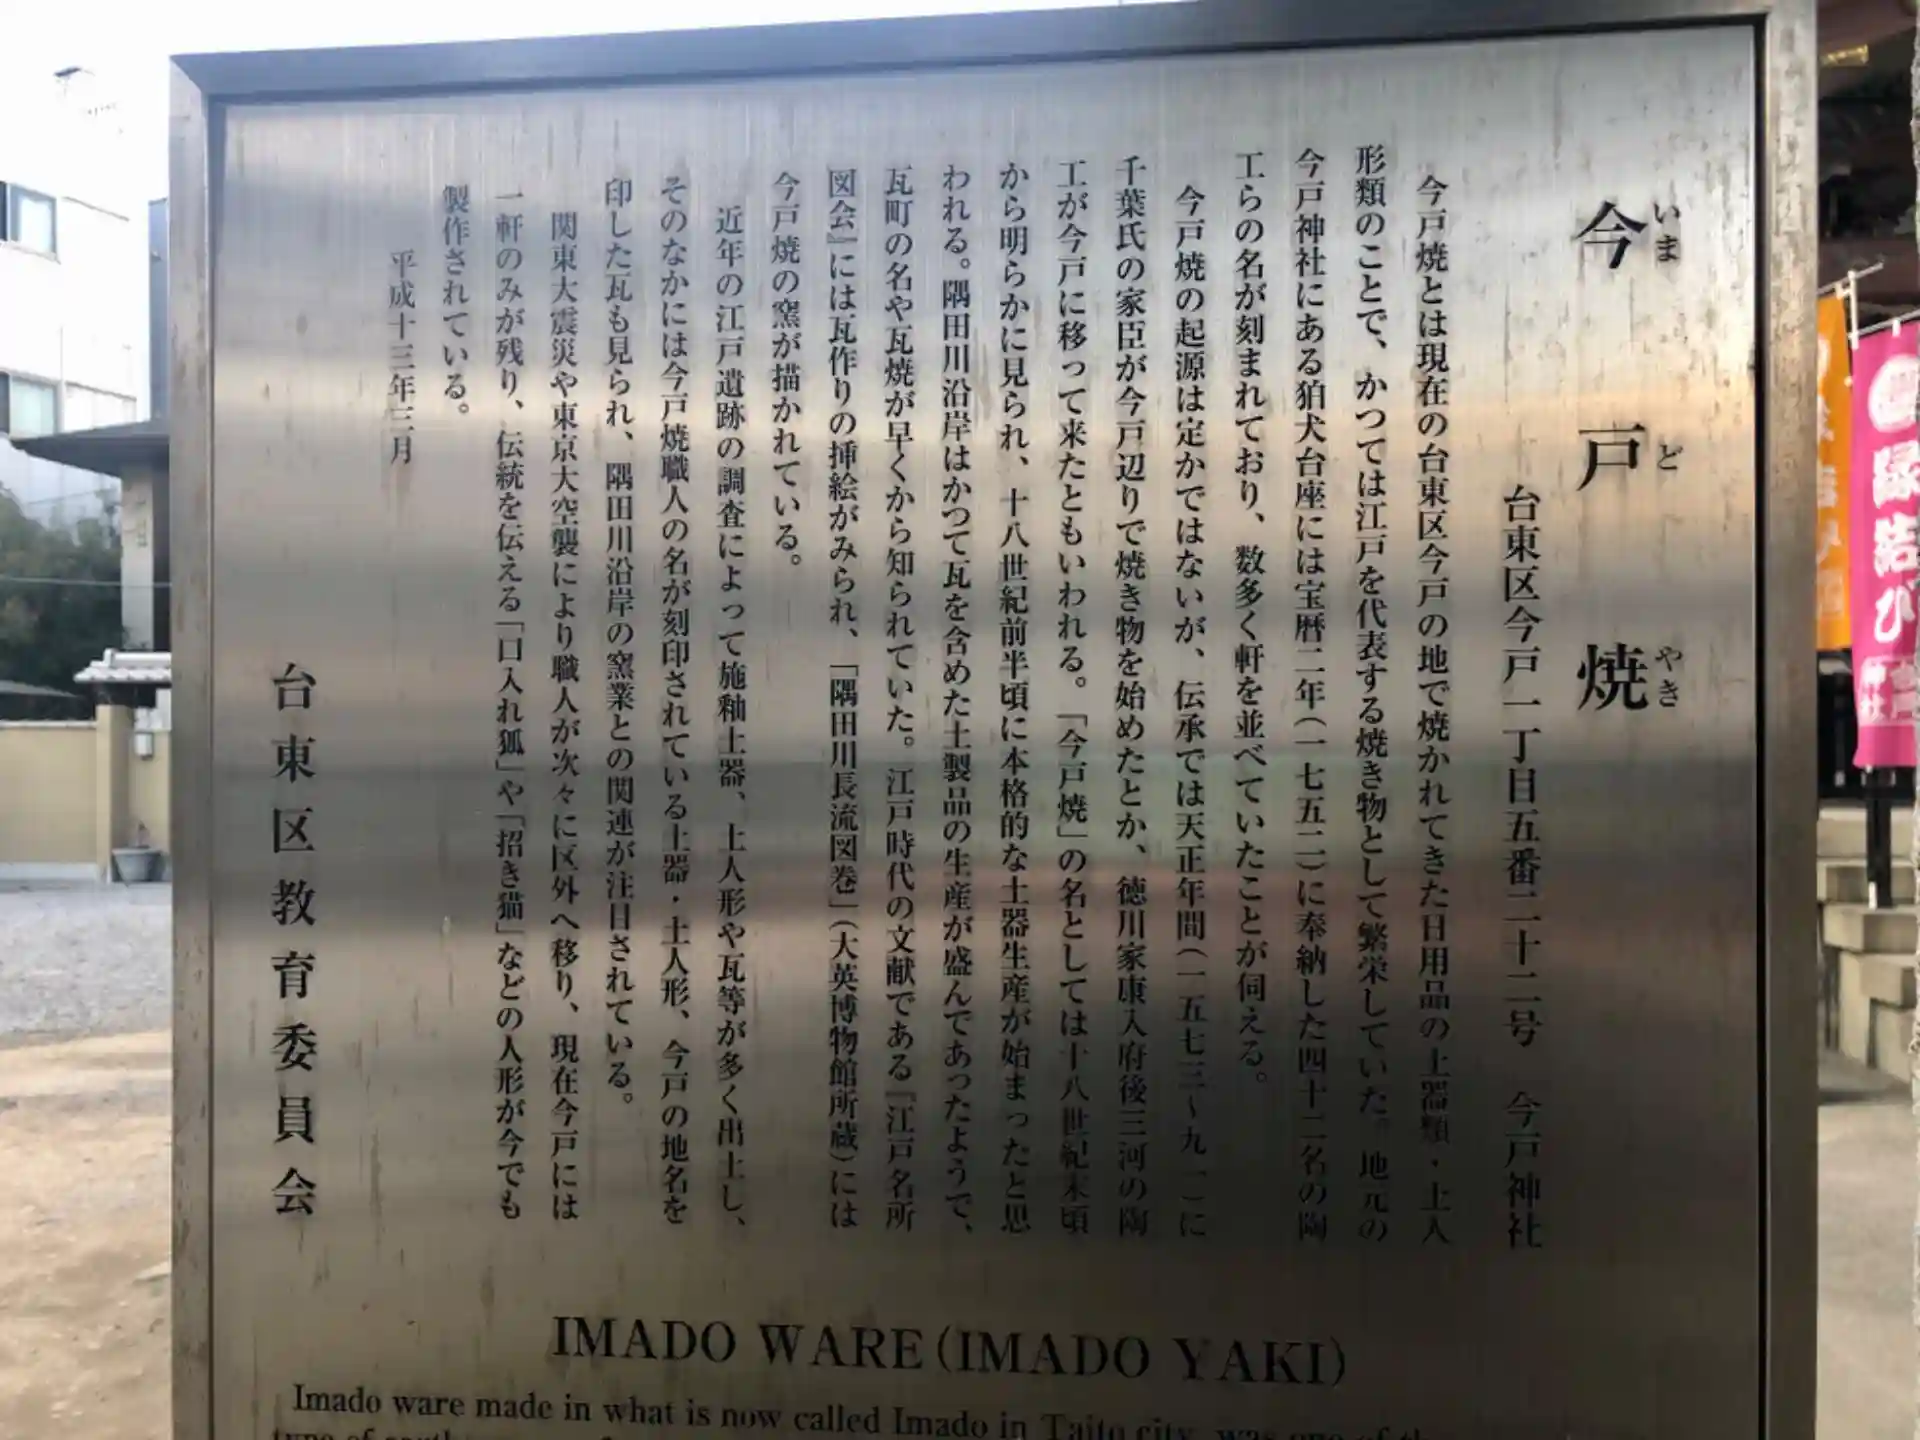 今戸焼
いまどやき
台東区今戸一丁目五番二十二号 今戸神社
今戸焼とは現在の台東区今戸の地で焼かれてきた日用品の土器類・土人
形類のことで、かつては江戸を代表する焼き物として繁栄していた。地元の
今戸神社にある狛犬台座には宝暦二年(一七五二)に奉納した四十二名の陶
工らの名が刻まれており、数多く軒を並べていたことが伺える。
今戸焼の起源は定かではないが、伝承では天正年間(一五七三〜九一)に
千葉氏の家臣が今戸辺りで焼き物を始めたとか、徳川家康入府後三河の陶
工が今戸に移って来たともいわれる。「今戸焼」の名としては十八世紀末頃
から明らかに見られ、十八世紀前半頃に本格的な土器生産が始まったと思
われる。隅田川沿岸はかつて瓦を含めた土製品の生産が盛んであったようで、
瓦町の名や瓦焼が早くから知られていた。江戸時代の文献である『江戸名所
図会』には瓦作りの挿絵がみられ、「隅田川長流図巻」(大英博物館所蔵)には
今戸焼の窯が描かれている。
近年の江戸遺跡の調査によって施釉土器、土人形や瓦等が多く出土し、
そのなかには今戸焼職人の名が刻印されている土器・土人形、今戸の地名を
印した瓦も見られ、隅田川沿岸の窯業との関連が注目されている。
関東大震災や東京大空襲により職人が次々に区外へ移り、現在今戸には
一軒のみが残り、伝統を伝える「口入れ狐」や「招き猫」などの人形が今でも
製作されている。
平成十三年三月
台東区教育委員会
IMADO WARE (IMADO YAKI)
Imado ware made in what is now called Imado in Taito city, was one of the
縁結び